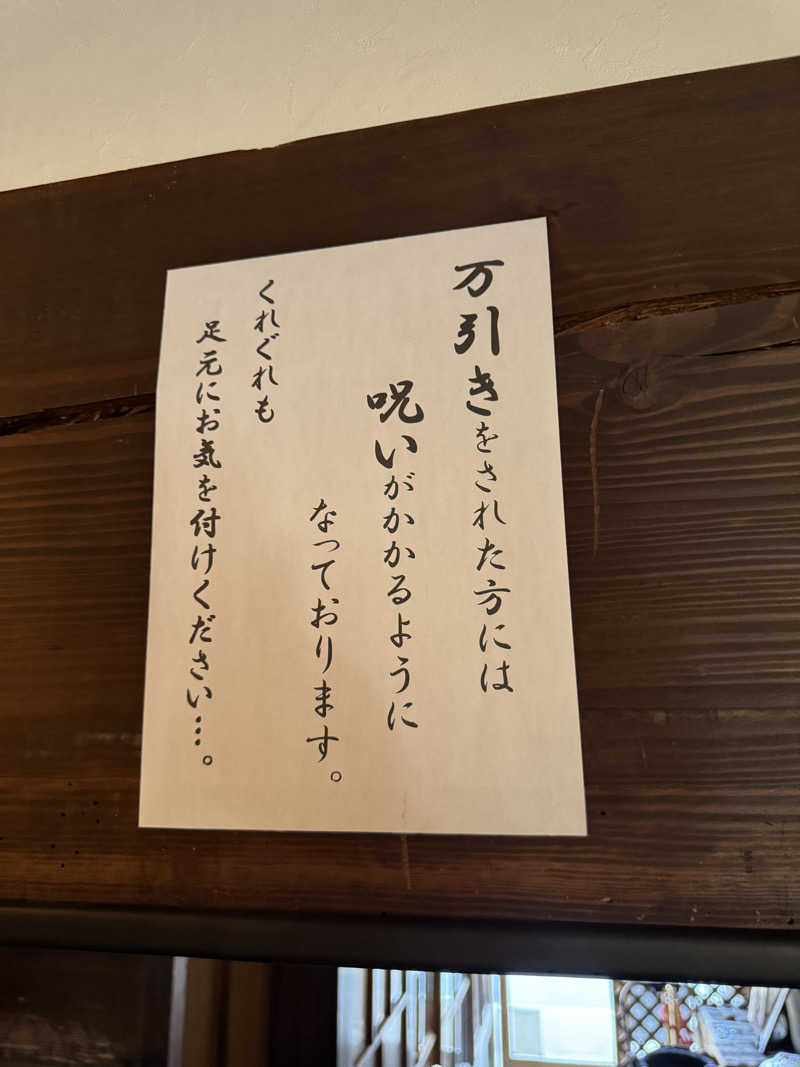 万引きをされた方には
呪いがかかるように
なっております。
くれぐれも
足元にお気を付けください…。